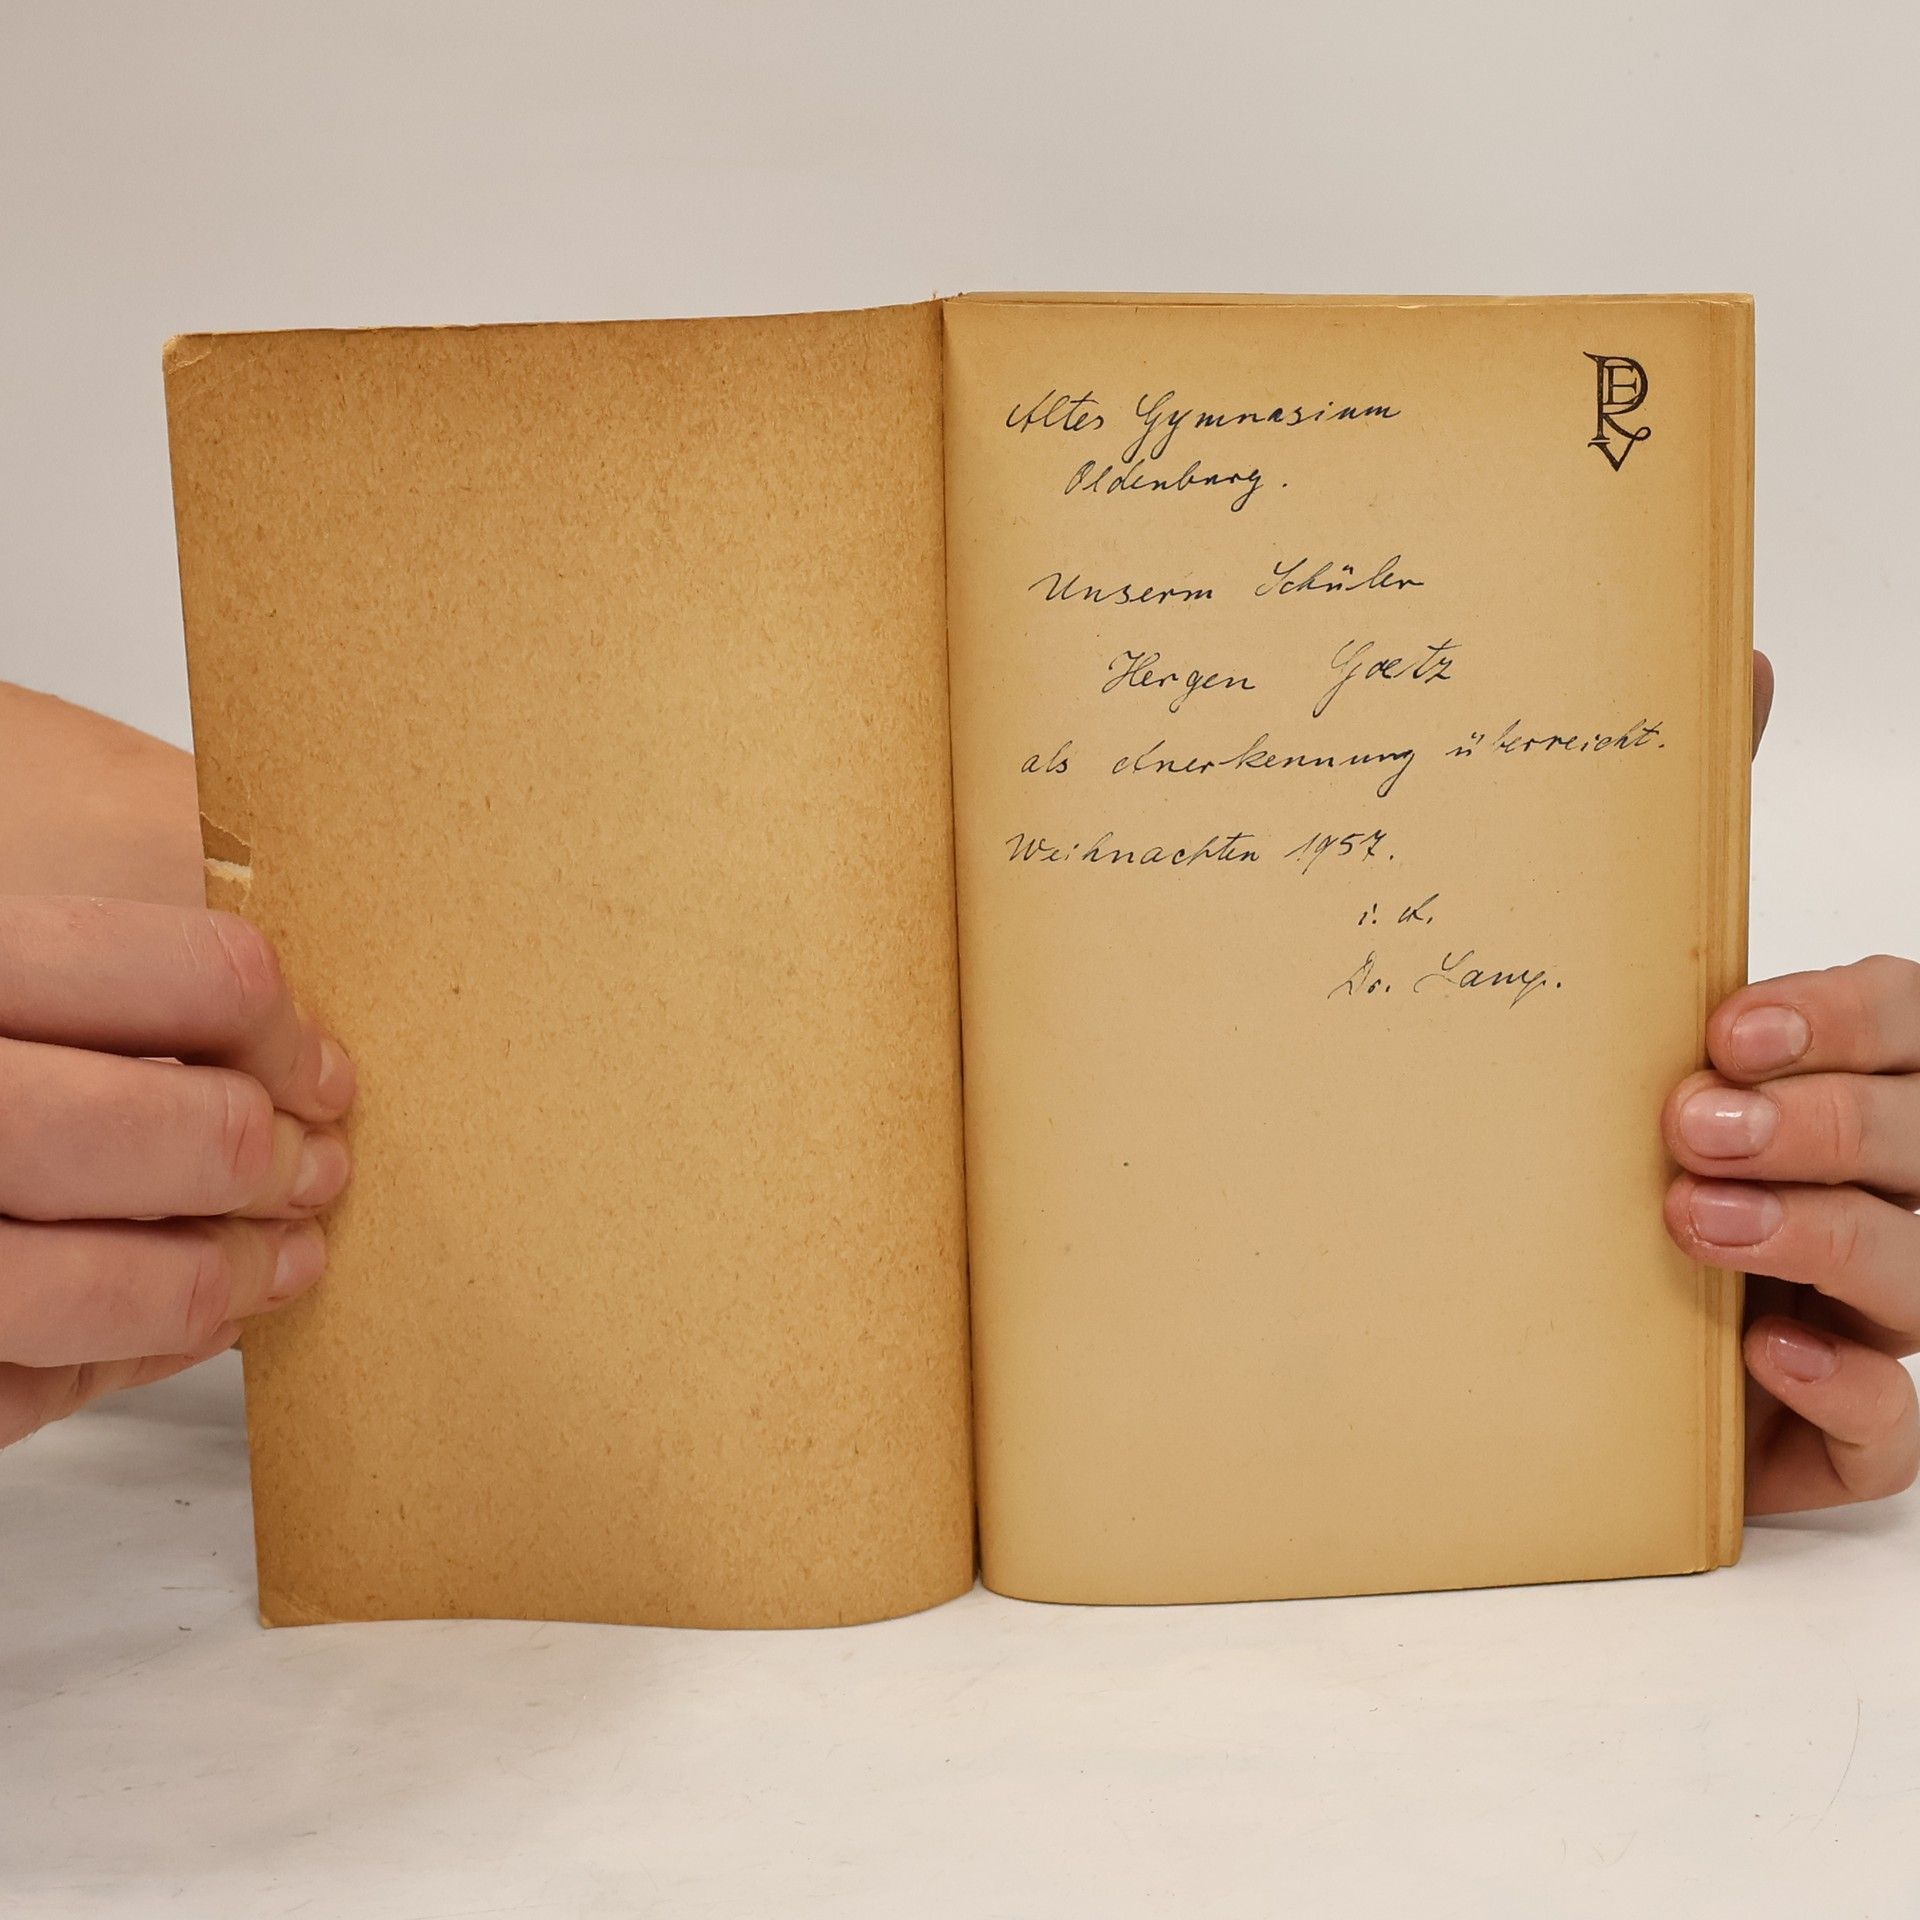 Altes Gymnasium
Oldenburg.
Unserm Schüler
Hergen Goetz
als Anerkennung überreicht.
Weihnachten 1957.
i. A.
Dr.